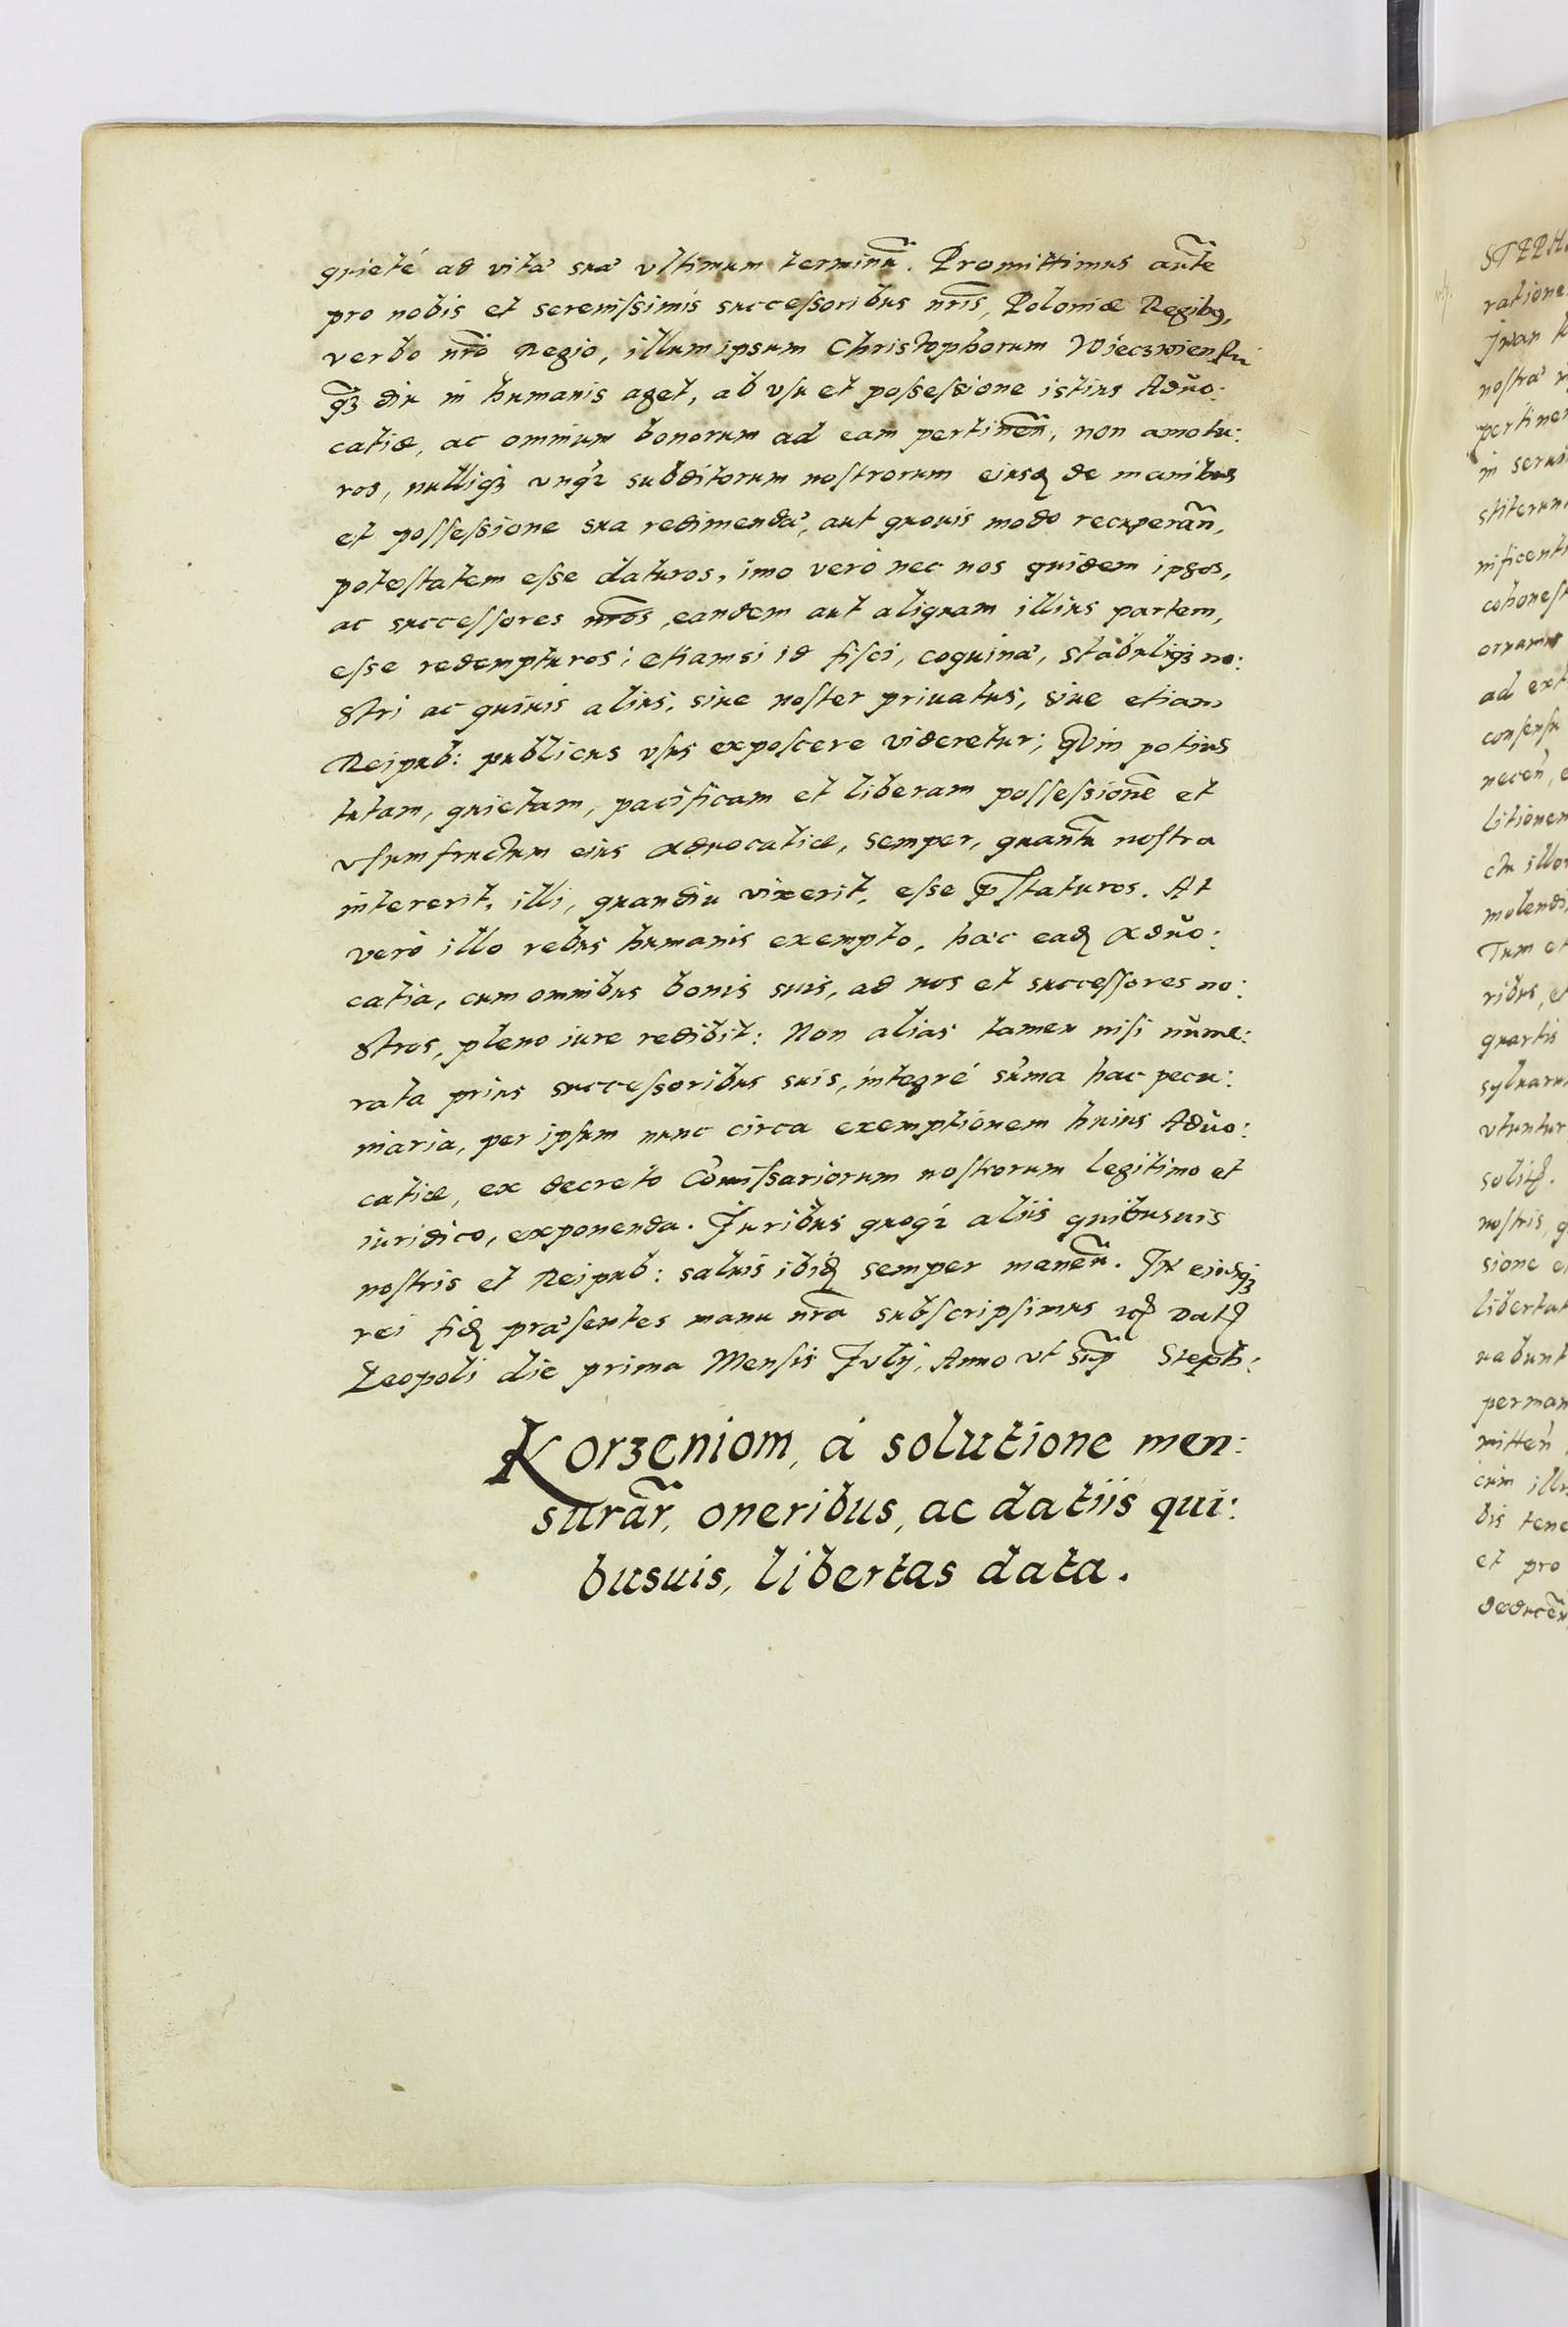 quieté ad vitæ suæ vltimum terminũ. Promittimus aũte
pro nobis et serenissimis successoribus nr̃is, Poloniæ Regibꝰ,
verbo nr̃o Regio, illum ipsum Christophorum Wieczwienski
qʒ̃ diu in humanis aget, ab vsu et possessione istius Adũo:
catiæ, ac omnium bonorum ad eam pertineñ, non amotu:
ros, nulliqʒ vnqꝫ subditorum nostrorum eiusꝗ de manibus
et possessione sua redimendæ, aut quouis modo recuperañ,
potestatem esse daturos, imo verò nec nos quidem ipsos,
ac successores nr̃os, eandem aut aliquam illius partem,
esse redempturos; etiamsi id fisci, coquinæ, stabuliqʒ no:
stri ac quiuis alius, siue noster priuatus, siue etiam
Reipub: publicus vsus exposcere videretur; quin potius
tutam, quietam, pacificam et liberam possessionẽ et
vsumfructum eius aduocatiæ, semper, quantũ nostra
intererit, illi, quandiu vixerit, esse p̃staturos. At
verò illo rebus humanis exempto, hæc eadꝫ adũo:
catia, cum omnibus bonis suis, ad nos et successores no:
stros, pleno iure redibit: Non alias tamen nisi nũme:
rata prius successoribus suis, integré sũma hac pecu:
niaria, per ipsum nunc circa exemptionem huius Adũo:
catiæ, ex decreto Com̃issariorum nostrorum legitimo et
iuridico, exponenda. Juribus quoqꝫ aliis quibusuis
nostris et Reipub: saluis ibidꝫ semper maneñ. In eiusqʒ
rei fidꝫ præsentes manu nr̃a subscripsimus Datꝫ
Leopoli die prima Mensis Julij, Anno vt sup̃ Steph:
Korzeniom, á solutione men:
surar̃, oneribus, ac datiis qui:
busuis, libertas data.
STEPHA
ratione
Jwan
nostra
pertinen
in serui
stiterun
nificenti
cohonest
ornamus
ad ext
consensu
neceñ, e
litionem
molendi
Tum et
ribus, et
quartis
syluarum
vtuntur
solitꝫ.
nostris, q
sione e
libertat
uabunt
perman
mitteñ
cum illu
bis tene
et pro